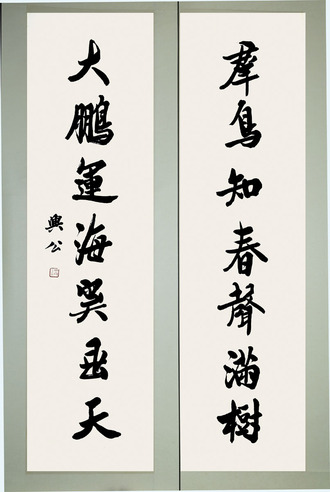 羣鳥知春聲滿樹
大鵬運海翼垂天
興公